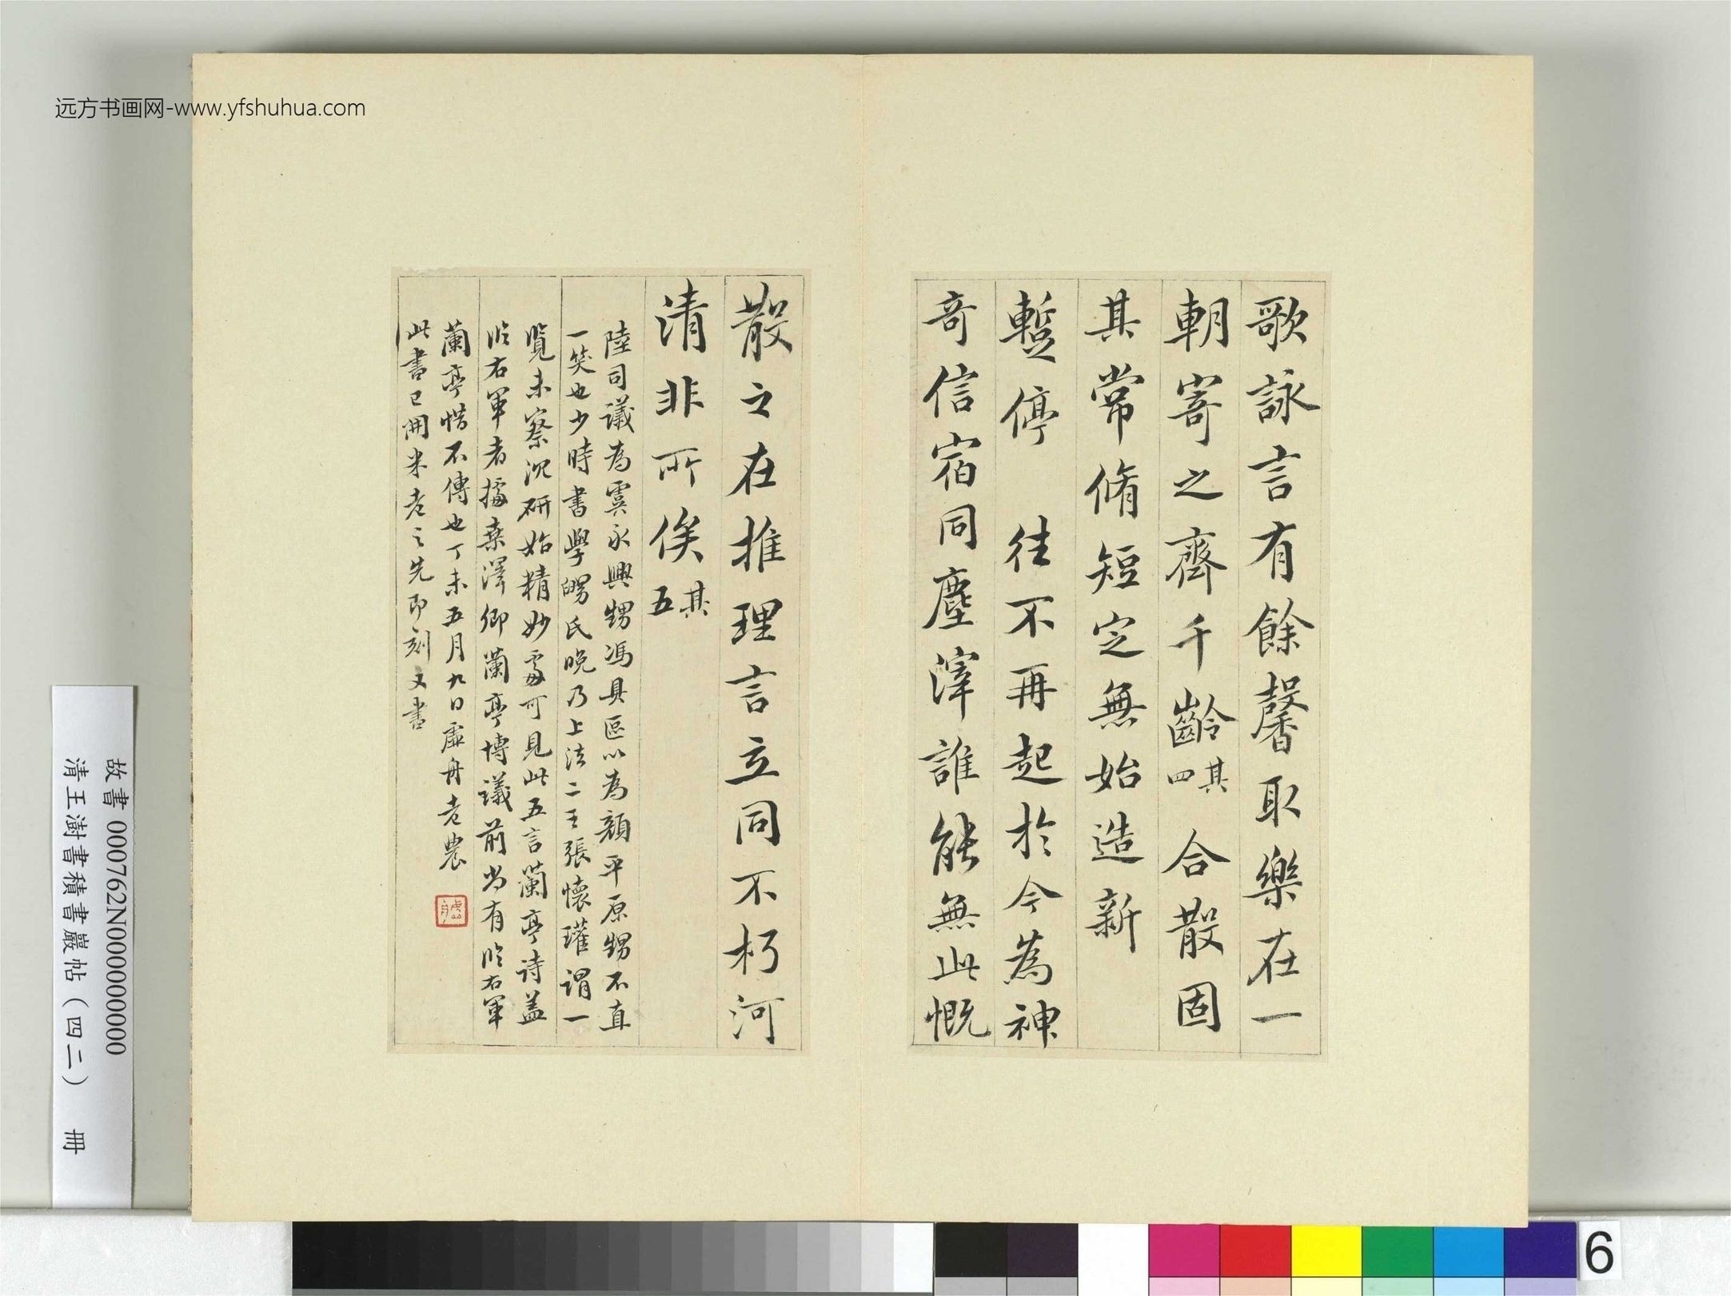 远方书画网-www.yfshuhua.com
歌詠言有餘馨取樂在一
朝寄之齊千齡其四合散固
其常脩短定無始造新
蹔停往不再起於今為神
奇信宿同塵滓誰能無此慨
散之在推理言立同不朽河
清非所俟其五
陸司議為虞永興甥馮具區以為顏平原甥不直
一笑也少時書學舅氏晚乃上法二王張懷瓘謂一
覽未察沉研始精妙處可見此五言蘭亭詩蓋
臨右軍者據桑澤卿蘭亭博議前尚有臨右軍
蘭亭惜不傳也丁未五月九日虛舟老農
此書已開米老之先即刻文書
虛舟
故書 000762N000000000
清王澍書積書巖帖（四二） 冊
6